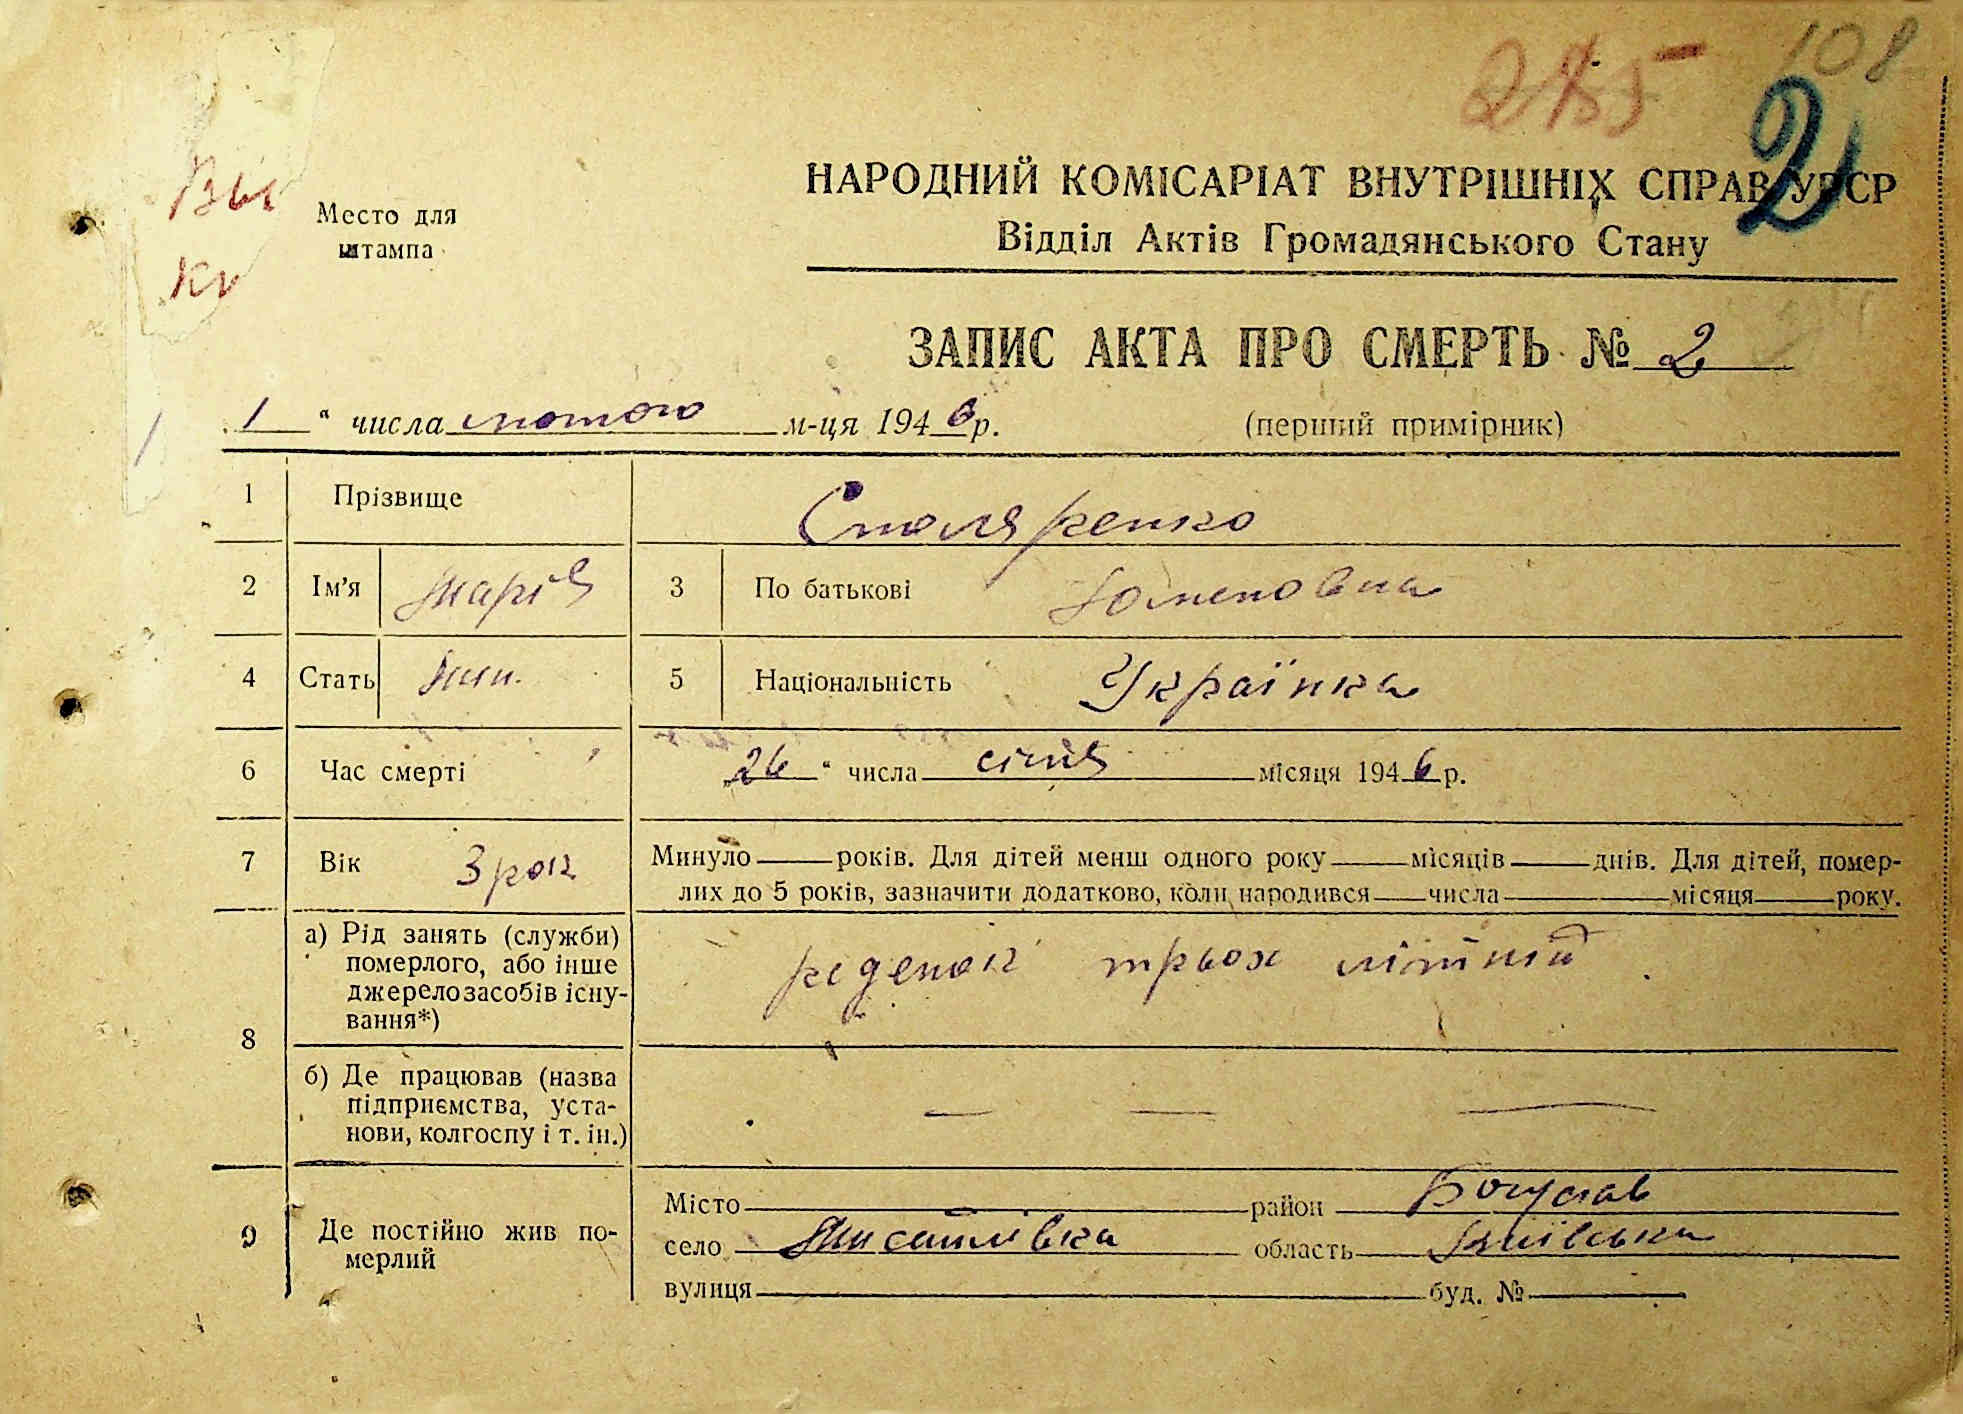 108
285
2
Вы
Место для
штампа
Кн
НАРОДНИЙ КОМІСАРІАТ ВНУТРІШНІХ СПРАВ УРСР
Відділ Актів Громадянського Стану
ЗАПИС АКТА ПРО СМЕРТЬ № 2
1 " числа лютого м-ця 1946 р. (перший примірник)
1 Прізвище Столяренко
2 Ім'я Марія 3 По батькові
4 Стать жін. 5 Національність Українка
6 Час смерті 26 " числа січня місяця 1946 р.
7 Вік 3 рок Минуло років. Для дітей менш одного року місяців днів. Для дітей, помер-
лих до 5 років, зазначити додатково, коли народився числа місяця року.
8 а) Рід занять (служби)
померлого, або інше
джерело засобів існу-
вання*)
ребенок трьох літній
б) Де працював (назва
підприємства, уста-
нови, колгоспу і т. ін.)
— — —
9 Де постійно жив по-
мерлий
Місто район Богуслав
село Мисайлівка область Київська
вулиця буд. №